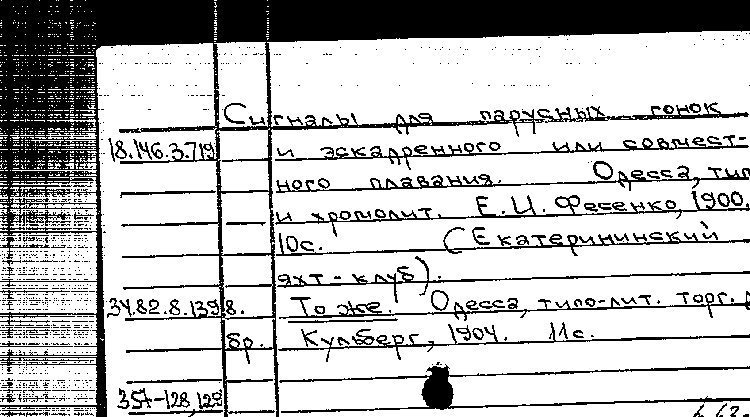 Сигналы для парусных гонок
18.146.3.719 и эскадренного или совмест-
ного плавания. Одесса, тип
и хромолит. Е.И. Фесенко, 1900.
10с. (Екатерининский
яхт-клуб).
34.82.8.139 8. То же. Одесса, типо-лит. торг.
бр. Кульберг, 1904. 11с.
357-128,129